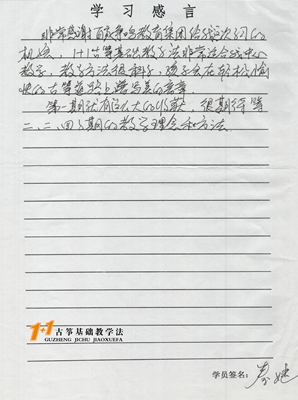 学习感言
非常感谢百家争鸣教育集团给我这次学习的
机会，1+1古筝基础教学法非常适合我中心
教学，教学方法很科学，孩子会在轻松愉
快的古筝道路上谱写美的乐章
第一期就有这么大的收获，很期待第
二、三、四期的教学理念和方法
1+1古筝基础教学法
GUZHENG JICHU JIAOXUEFA
学员签名：